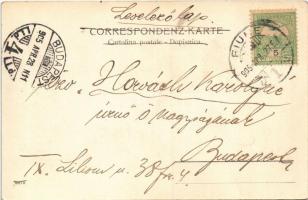 Levelező lap.
CORRESPONDENZ-KARTE
Cartolina postale - Dopisnica
FIUME
BUDAPEST
905 APR. 28
Horváth Károlyné
úrnő ő nagyságának
Budapest
IX. Liliom u. 38